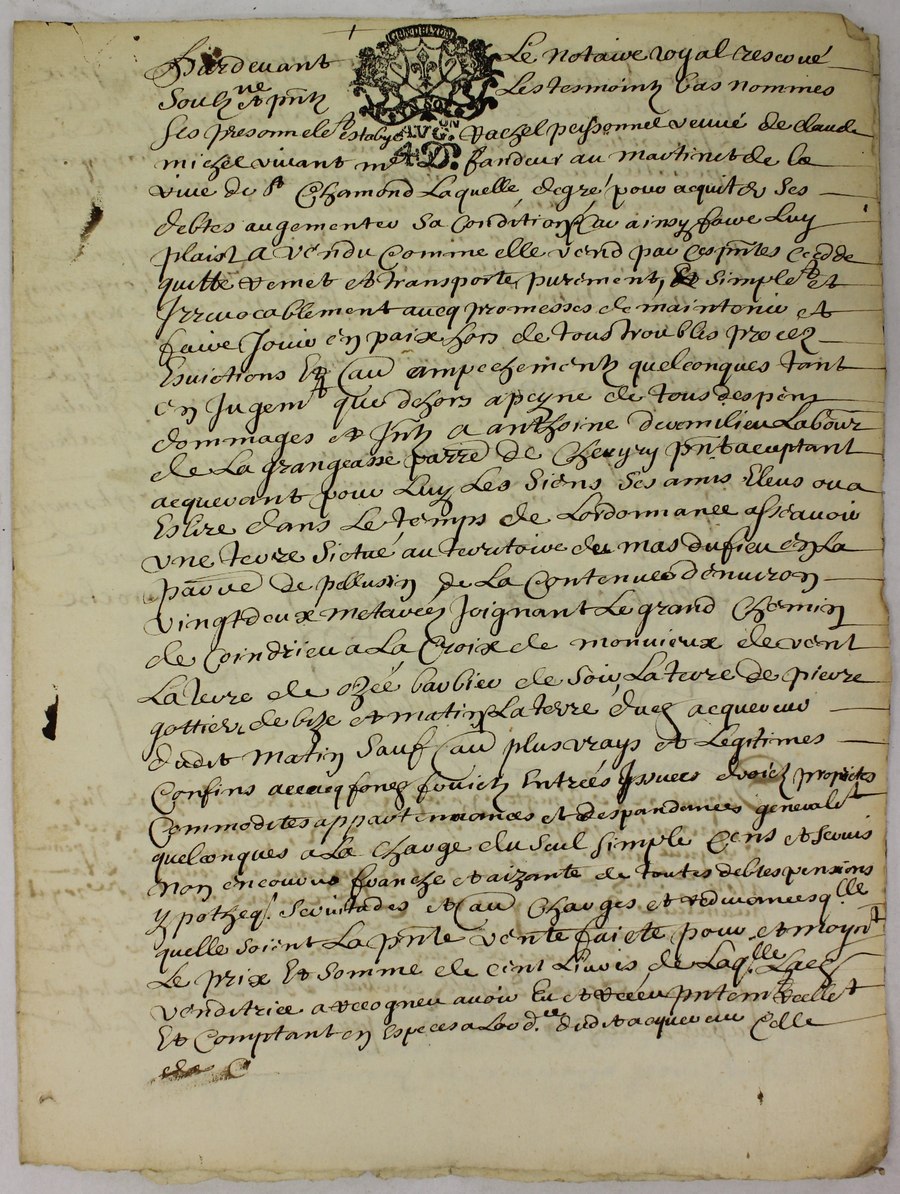 GEN. DE LYON
VN SOL
AVG.ON
4 D.
Pardevant Le Notaire royal reservé
Soubz.ne et pntz Les tesmointz bas nommes
ses presonnelet establye Rachel personnel veuve de claude
michel vivant me fandeur au martinet de la
ville de St Chamond Laquelle de gré pour acquiter ses
debtes augementer sa condition Car ainsy faire Luy
plaist A Vendu Comme elle vend par ces pntes cedde
quitte remet et transporte purement, et simplet et
Irrevocablement avecq promesses de maintenir et
faire Jouir en paix hors de tous troubles procez
Esvictions Et au empechementz quelconques tant
en Jugemt que dehors a peyne de tous despens
dommages et Jntz A anthoine dermilieu Labour
de La grangeasse parre de Cheyry pnt aceptant
acquerant pour Luy Les siens ses amis Eleus ou a
Eslire dans Le temps de Lordonnance assavoir
Une terre sictué au territoire du mas du fieu en La
parre de pellusin de La Contenue d'environ
vingt deux metarez Joignant Le grand Chemin
de Coindrieu a La Croix de monvieux de vent
La terre de ozée barbier de soir La terre de pierre
gottier, de bize et matin La terre dud acquereur
dudit matin Sauf au plus vrays et Legitimes
Confins avecq fonez fruictz Entrées Issues droictz proprietes
Commodites appartenances et despandances generalet
quelconques a La Charge du seul simple Cens et servis
non encourus franche et aizante de toutes debtes pensions
ypotheq. servitudes et au Charges et redevances q.lle
quelle soient La pnte vente faicte pour et moynt
Le prix Et Somme de Cent Livres de Laq.lle Lad
venditrice a recogneu avoir Eu et receu pntemt reellet
Et Comptant en Especes a Lord.re dudit acquereur Celle